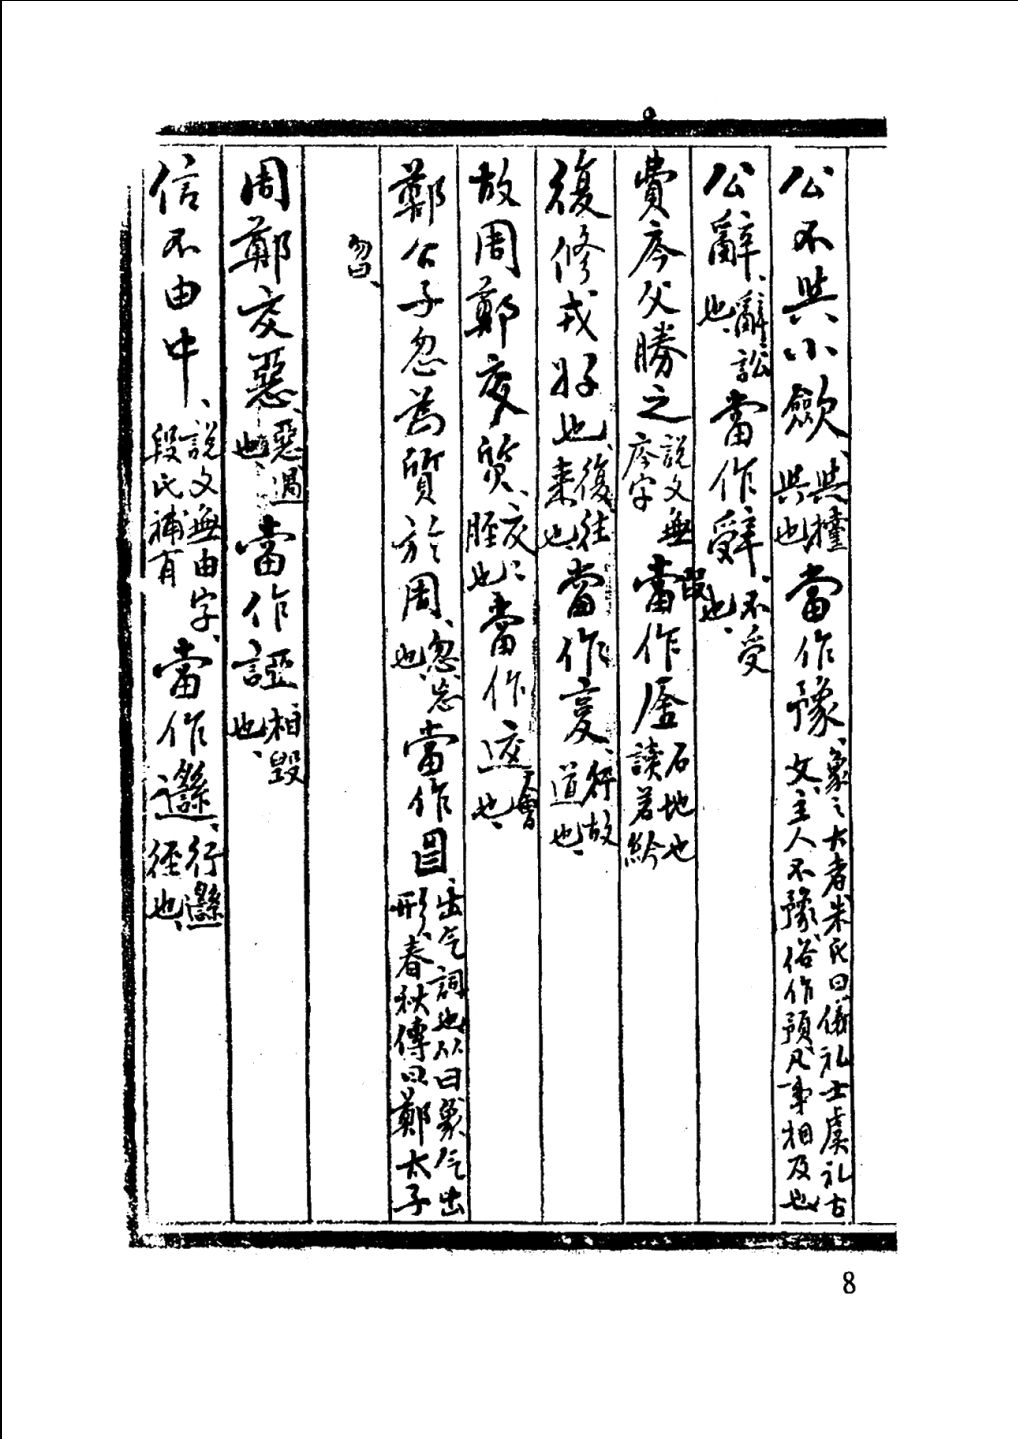 公不與小歛、與攩與也、當作豫、象之大者朱氏曰儀礼士虞礼古文、主人不豫、俗作預、凡事相及也
公辭、辭訟也、當作辤、不受也、
費庈父勝之說文無庈字當作㕋石地也讀若給
復修戎好也、復往来也、當作㚆、行故道也、
故周鄭交質、交脛也、當作䢒會也、
鄭公子忽為質於周、忽忘也、當作𥄎出气詞也从曰象气出形、春秋傳曰鄭太子
曶、
周鄭交惡、惡過也、當作䛩相毀也、
信不由中、說文無由字、段氏補有當作䌛、行䌛徑也、
8